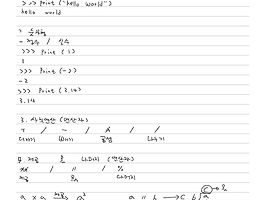 >>> print("hello world")
hello world
- 정수 / 실수
>>> print(1)
1
>>> print(-2)
-2
>>> print(3.14)
3.14
3. 사칙연산 (연산자)
+ / - / * / /
더하기 빼기 곱셈 나누기
** / // / %
제곱 몫 나머지